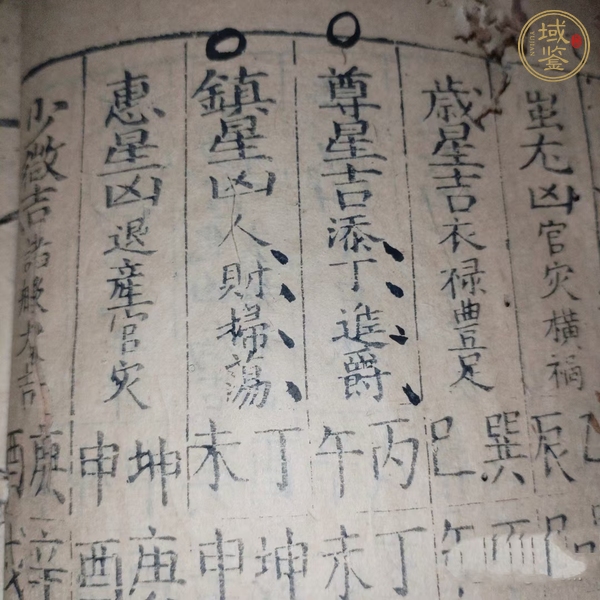 蚩尤凶官灾橫禍
歳星吉衣禄豊足
尊星吉添丁進爵
鎮星凶人財掃蕩
惠星凶退産官灾
少微吉諸般大吉
巽巳丙午丁未坤申庚
辰
丁未坤申庚酉
域鉴